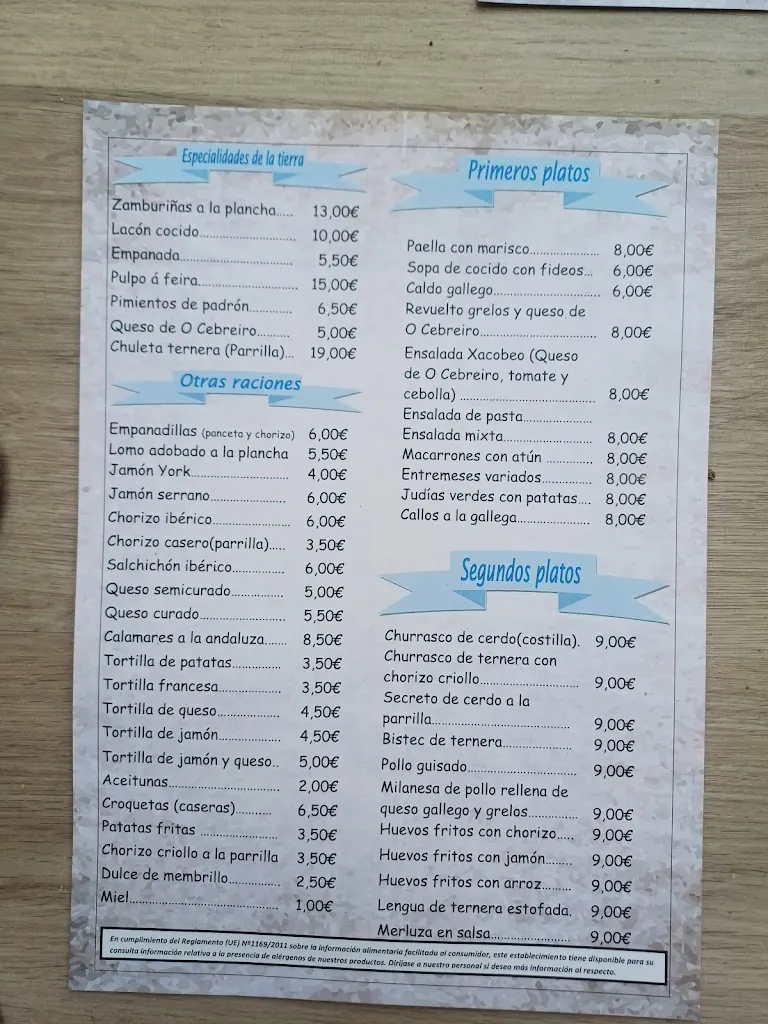 Especialidades de la tierra
Zamburiñas a la plancha..... 13,00€
Lacón cocido........................ 10,00€
Empanada............................ 5,50€
Pulpo á feira......................... 15,00€
Pimientos de padrón............ 6,50€
Queso de O Cebreiro......... 5,00€
Chuleta ternera (Parrilla)... 19,00€
Otras raciones
Empanadillas (panceta y chorizo) 6,00€
Lomo adobado a la plancha 5,50€
Jamón York........................ 4,00€
Jamón serrano................... 6,00€
Chorizo ibérico.................... 6,00€
Chorizo casero(parrilla)..... 3,50€
Salchichón ibérico.............. 6,00€
Queso semicurado.............. 5,00€
Queso curado...................... 5,50€
Calamares a la andaluza...... 8,50€
Tortilla de patatas............. 3,50€
Tortilla francesa................ 3,50€
Tortilla de queso................ 4,50€
Tortilla de jamón................ 4,50€
Tortilla de jamón y queso.. 5,00€
Aceitunas............................ 2,00€
Croquetas (caseras)......... 6,50€
Patatas fritas .................... 3,50€
Chorizo criollo a la parrilla 3,50€
Dulce de membrillo............. 2,50€
Miel...................................... 1,00€
Primeros platos
Paella con marisco................. 8,00€
Sopa de cocido con fideos... 6,00€
Caldo gallego.......................... 6,00€
Revuelto grelos y queso de
O Cebreiro............................. 8,00€
Ensalada Xacobeo (Queso
de O Cebreiro, tomate y
cebolla) ................................. 8,00€
Ensalada de pasta..................
Ensalada mixta....................... 8,00€
Macarrones con atún ............ 8,00€
Entremeses variados............. 8,00€
Judías verdes con patatas.... 8,00€
Callos a la gallega.................. 8,00€
Segundos platos
Churrasco de cerdo(costilla). 9,00€
Churrasco de ternera con
chorizo criollo........................ 9,00€
Secreto de cerdo a la
parrilla.................................. 9,00€
Bistec de ternera................. 9,00€
Pollo guisado.......................... 9,00€
Milanesa de pollo rellena de
queso gallego y grelos............ 9,00€
Huevos fritos con chorizo..... 9,00€
Huevos fritos con jamón....... 9,00€
Huevos fritos con arroz........ 9,00€
Lengua de ternera estofada. 9,00€
Merluza en salsa................... 9,00€
En cumplimiento del Reglamento (UE) Nº1169/2011 sobre la información alimentaria facilitada al consumidor, este establecimiento tiene disponible para su
consulta información relativa a la presencia de alérgenos de nuestros productos. Diríjase a nuestro personal si desea más información al respecto.